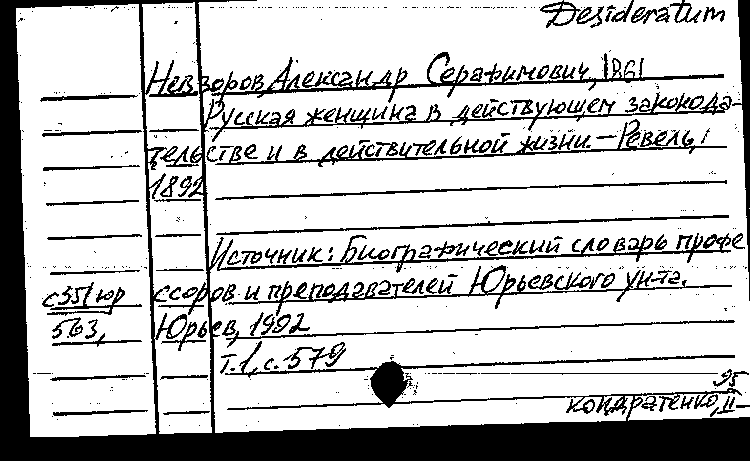 Desideratum
Невзоров, Александр Серафимович, 1861
Русская женщина в действующем законода-
тельстве и в действительной жизни. – Ревель,
1892
Источник: Биографический словарь профе
с351 юр ссоров и преподавателей Юрьевского ун-та.
563, Юрьев, 1902
т.1, с. 579
95
кондратенко, II